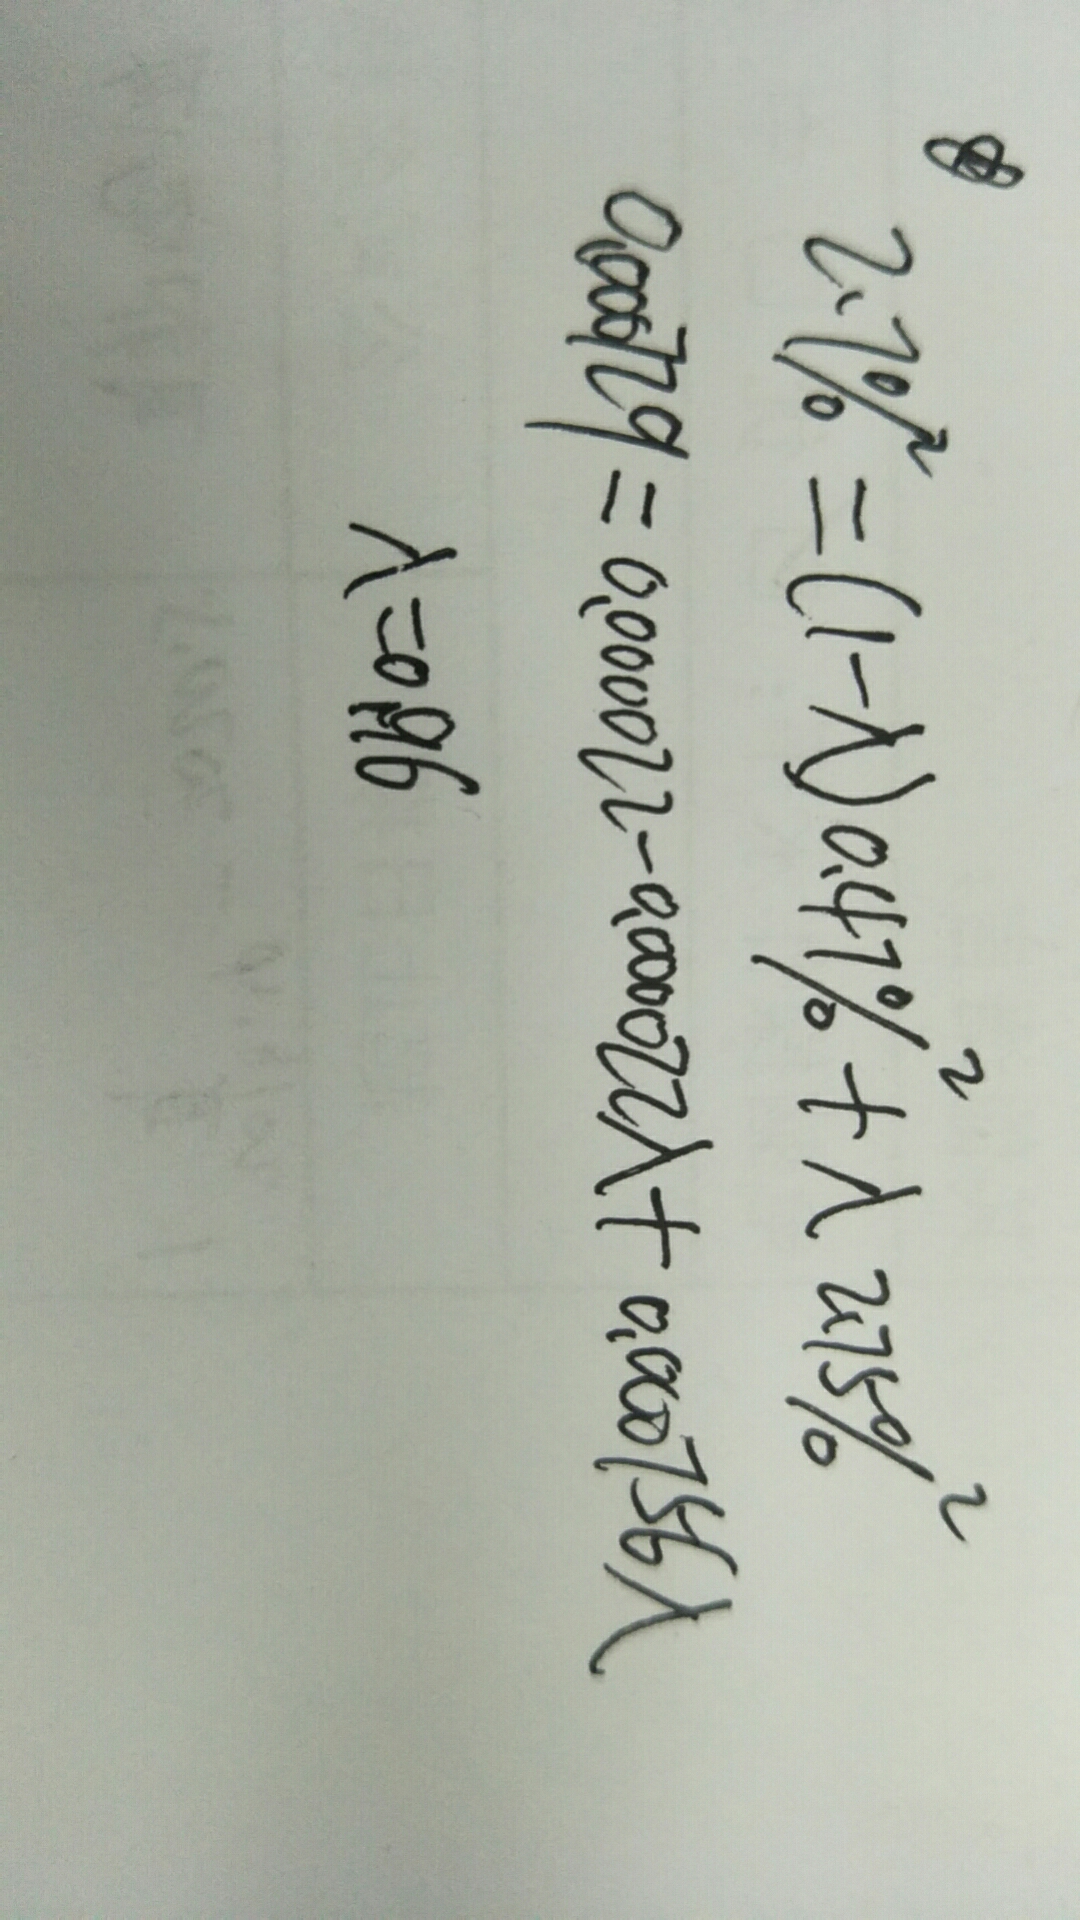 2.7%² = (1-λ)0.47%² + λ 2.75%²
0.000729 = 0.000022 - 0.000022λ + 0.000756λ
λ = 0.96